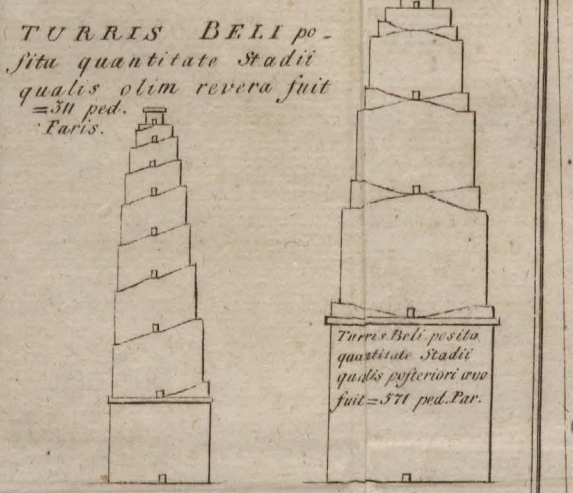 TURRIS BELI po-
ſita quantitate Stadii
qualis olim revera fuit
=311 ped.
Paris.
Turris Beli poſita
quantitate Stadii
qualis poſteriori ævo
fuit=571 ped. Par.